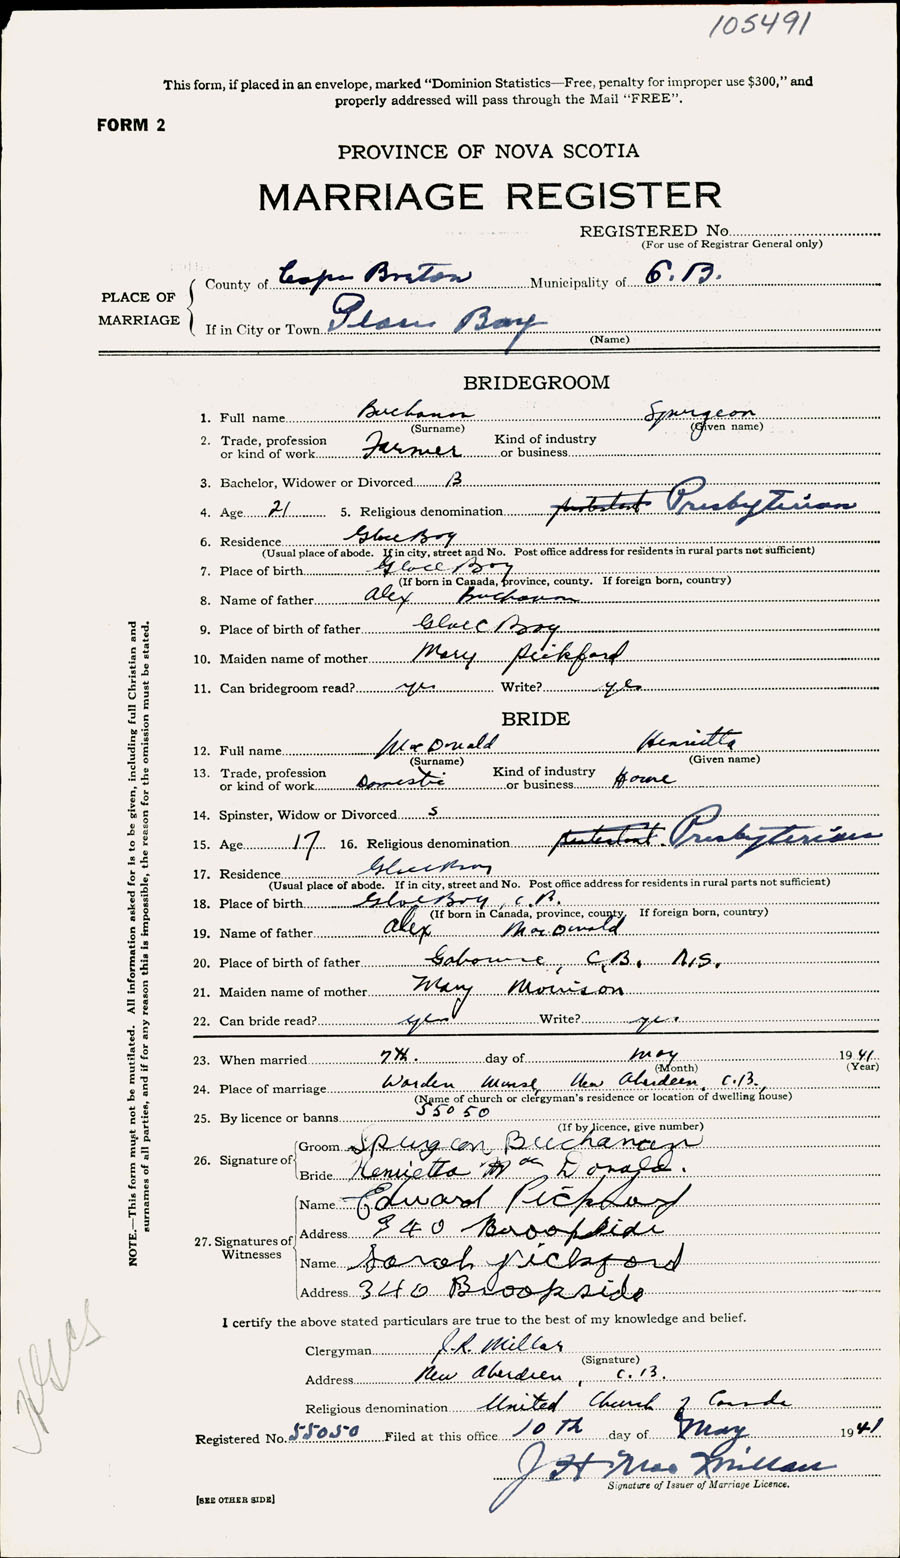 105491
This form, if placed in an envelope, marked “Dominion Statistics—Free, penalty for improper use $300,” and
properly addressed will pass through the Mail “FREE”.
FORM 2
PROVINCE OF NOVA SCOTIA
MARRIAGE REGISTER
REGISTERED No.
(For use of Registrar General only)
PLACE OF MARRIAGE
County of Cape Breton Municipality of C.B.
If in City or Town Glace Bay
(Name)
BRIDEGROOM
1. Full name Buchanan Spurgeon
(Surname) (Given name)
2. Trade, profession or kind of work Farmer Kind of industry or business
3. Bachelor, Widower or Divorced B
4. Age 21 5. Religious denomination protestant Presbyterian
6. Residence Glace Bay
(Usual place of abode. If in city, street and No. Post office address for residents in rural parts not sufficient)
7. Place of birth Glace Bay
(If born in Canada, province, county. If foreign born, country)
8. Name of father Alex Buchanan
9. Place of birth of father Glace Bay
10. Maiden name of mother Mary Pickford
11. Can bridegroom read? yes Write? yes
BRIDE
12. Full name MacDonald Henrietta
(Surname) (Given name)
13. Trade, profession or kind of work Domestic Kind of industry or business Home
14. Spinster, Widow or Divorced S
15. Age 17 16. Religious denomination protestant Presbyterian
17. Residence Glace Bay
(Usual place of abode. If in city, street and No. Post office address for residents in rural parts not sufficient)
18. Place of birth Glace Bay, C.B.
(If born in Canada, province, county. If foreign born, country)
19. Name of father Alex MacDonald
20. Place of birth of father Gabarouse, C.B. N.S.
21. Maiden name of mother Mary Morrison
22. Can bride read? yes Write? yes
23. When married 7th. day of May 1941
(Month) (Year)
24. Place of marriage Warden Manse, New Aberdeen, C.B.,
(Name of church or clergyman's residence or location of dwelling house)
25. By licence or banns 55050
(If by licence, give number)
26. Signature of
Groom Spurgeon Buchanan
Bride Henrietta Mac Donald.
27. Signatures of Witnesses
Name Edward Pickford
Address 340 Brookside
Name Sarah Pickford
Address 340 Brookside
I certify the above stated particulars are true to the best of my knowledge and belief.
Clergyman J.R. Millar
(Signature)
Address New Aberdeen, C.B.
Religious denomination United Church of Canada
Registered No. 55050 Filed at this office 10th day of May 1941
J H MacMillan
Signature of Issuer of Marriage Licence.
[SEE OTHER SIDE]
NOTE.—This form must not be mutilated. All information asked for is to be given, including full Christian and
surnames of all parties, and if for any reason this is impossible, the reason for the omission must be stated.